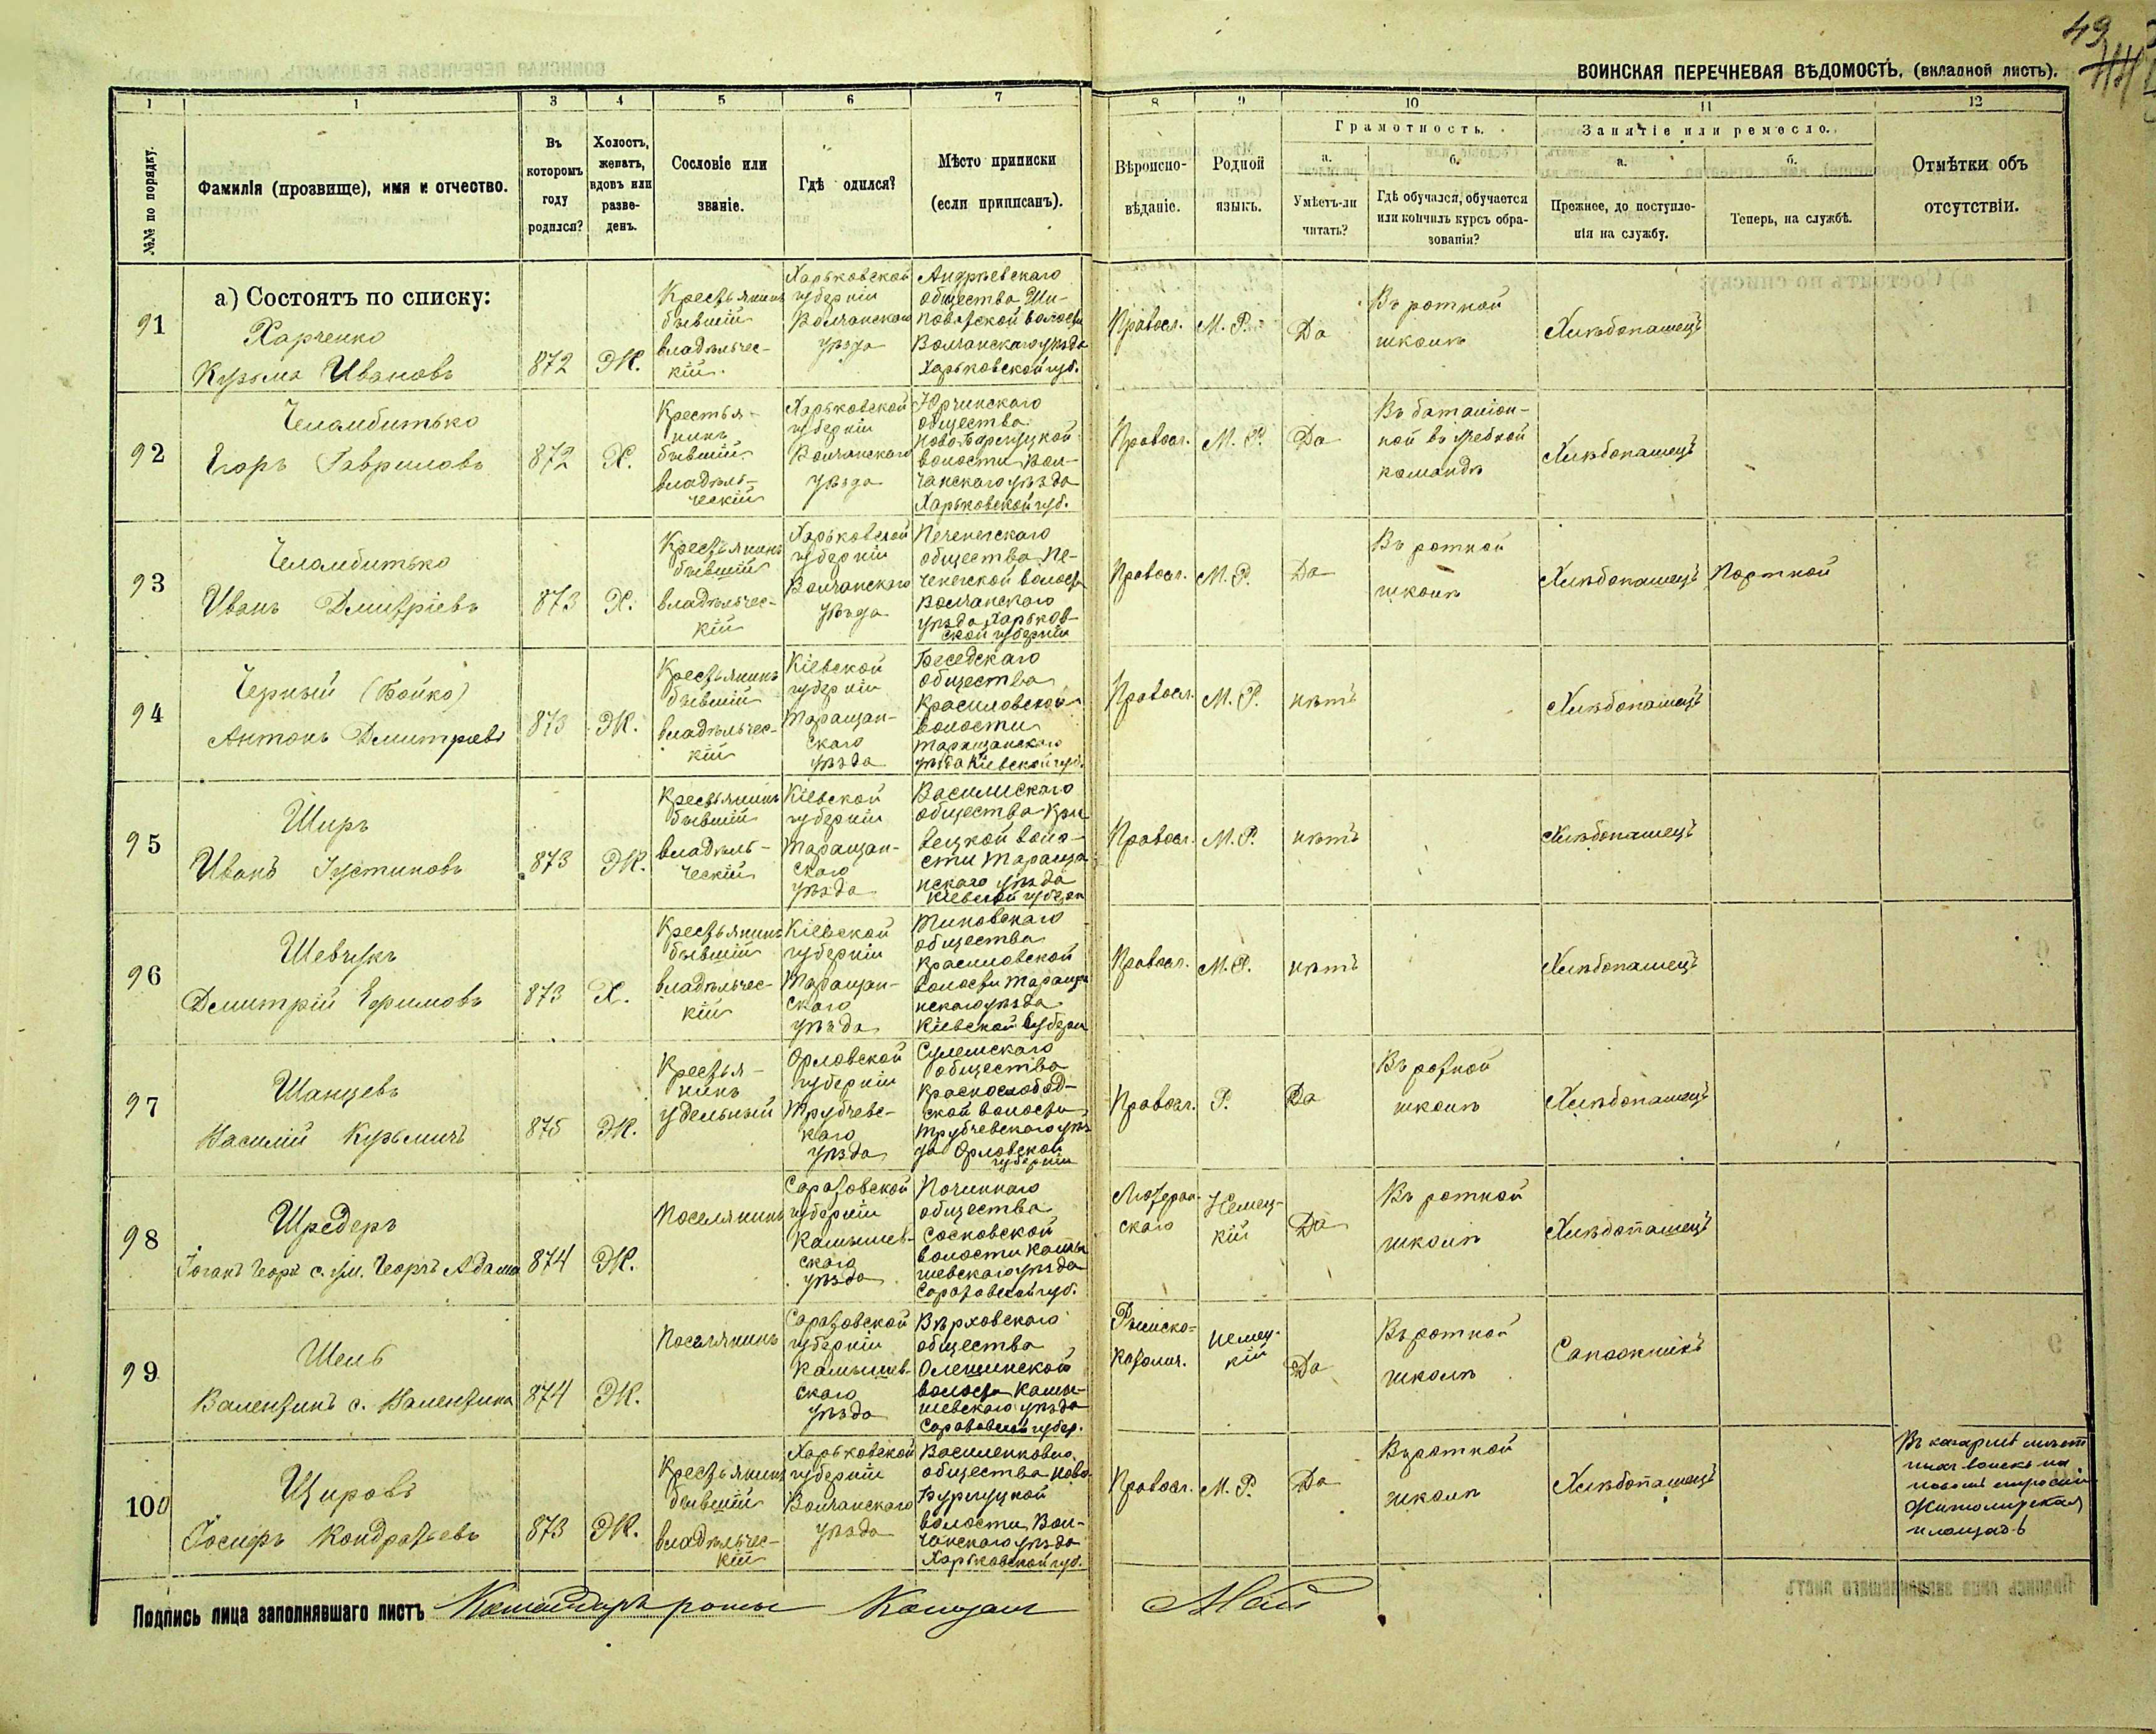 49
ВОИНСКАЯ ПЕРЕЧНЕВАЯ ВѢДОМОСТЬ. (вкладной листъ).
1 1 3 4 5 6 7 8 9 10 11 12
№№ по порядку.
Фамилія (прозвище), имя и отчество.
Въ
которомъ
году
родился?
Холостъ,
женатъ,
вдовъ или
разве-
денъ.
Сословіе или
званіе.
Гдѣ одился?
Мѣсто приписки
(если приписанъ).
Вѣроиспо-
вѣданіе.
Родной
языкъ.
Грамотность.
а.
Умѣетъ-ли
читать?
б.
Гдѣ обучался, обучается
или кончилъ курсъ обра-
зованія?
Занятіе или ремесло.
а.
Прежнее, до поступле-
нія на службу.
б.
Теперь, на службѣ.
Отмѣтки объ
отсутствіи.
а) Состоятъ по списку:
91
Харченко
Кузьма Ивановъ
872
Ж.
Крестьянинъ
бывшій
владѣльчес-
кій
Харьковской
губерніи
Волчанскаго
уѣзда
Андреевскаго
общества Ши-
поватской волости
Волчанскаго уѣзда
Харьковской губ.
Правосл.
М. Р.
Да
Въ ротной
школѣ
Хлѣбопашецъ
92
Челомбитько
Егоръ Гавриловъ
872
Х.
Крестья-
нинъ
бывшій
владѣль-
ческій
Харьковской
губерніи
Волчанскаго
уѣзда
Юрчинскаго
общества
Ново-Бурлуцкой
волости Вол-
чанскаго уѣзда
Харьковской губ.
Правосл.
М. Р.
Да
Въ баталіон-
ной в учебной
командѣ
Хлѣбопашецъ
93
Челомбитько
Иванъ Дмитріевъ
873
Х.
Крестьянинъ
бывшій
владѣльчес-
кій
Харьковской
губерніи
Волчанскаго
уѣзда
Печенегскаго
общества Пе-
ченегской волости
Волчанскаго
уѣзда Харьков-
ской губерніи
Правосл.
М. Р.
Да
Въ ротной
школѣ
Хлѣбопашецъ
Портной
94
Черный (Бойко)
Антонъ Дмитріевъ
873
Ж.
Крестьянинъ
бывшій
владѣльчес-
кій
Кіевской
губерніи
Таращан-
скаго
уѣзда
Беседскаго
общества
Красиловской
волости
Таращанскаго
уѣзда Кіевской губ.
Правосл.
М. Р.
нѣтъ
Хлѣбопашецъ
95
Широ
Иванъ Іустиновъ
873
Ж.
Крестьянинъ
бывшій
владѣль-
ческій
Кіевской
губерніи
Таращан-
скаго
уѣзда
общества
вецкой воло-
сти Тараща
нскаго уѣзда
Кіевской губерн
Правосл.
М. Р.
нѣтъ
Хлѣбопашецъ
96
Шевчукъ
Дмитрій Ефимовъ
873
Х.
Крестьянинъ
бывшій
владѣльчес-
кій
Кіевской
губерніи
Таращан-
скаго
уѣзда
общества
Красиловской
волости Тараща
нскаго уѣзда
Кіевской губерн
Правосл.
М. Р.
нѣтъ
Хлѣбопашецъ
97
Шанцевъ
Василій Кузьмичъ
875
Ж.
Крестья-
нинъ
удельный
Орловской
губерніи
Трубчевс-
каго
уѣзда
общества
Краснослобод-
ской волости
Трубчевскаго уѣз
да Орловской
губерніи
Правосл.
Р.
Да
Въ ротной
школѣ
Хлѣбопашецъ
98
Шредеръ
Іоганъ Георг с. Георгъ Адама
874
Ж.
Поселянинъ
Саратовской
губерніи
Камышев-
скаго
уѣзда
общества
Сосновской
волости Камы
шевскаго уѣзда
Саратовской губ.
Лютеран-
скаго
Немец-
кій
Да
Въ ротной
школѣ
Хлѣбопашецъ
99
Шель
Валентинъ с. Валентина
874
Ж.
Поселянинъ
Саратовской
губерніи
Камышев-
скаго
уѣзда
Верховскаго
общества
Олешинской
волости Камы-
шевскаго уѣзда
Саратовской губер.
Римско-
Католич.
немец-
кій
Да
Въ ротной
школѣ
Сапожникъ
100
Щировъ
Іосифъ Кондратьевъ
873
Ж.
Крестьянинъ
бывшій
владѣльчес-
кій
Харьковской
губерніи
Волчанскаго
уѣзда
общества Ново-
Бурлуцкой
волости Вол-
чанскаго уѣзда
Харьковской губ.
Правосл.
М. Р.
Да
Въ ротной
школѣ
Хлѣбопашецъ
Житомирская
площадь
Подпись лица заполнявшаго листъ Командиръ роты Капитанъ